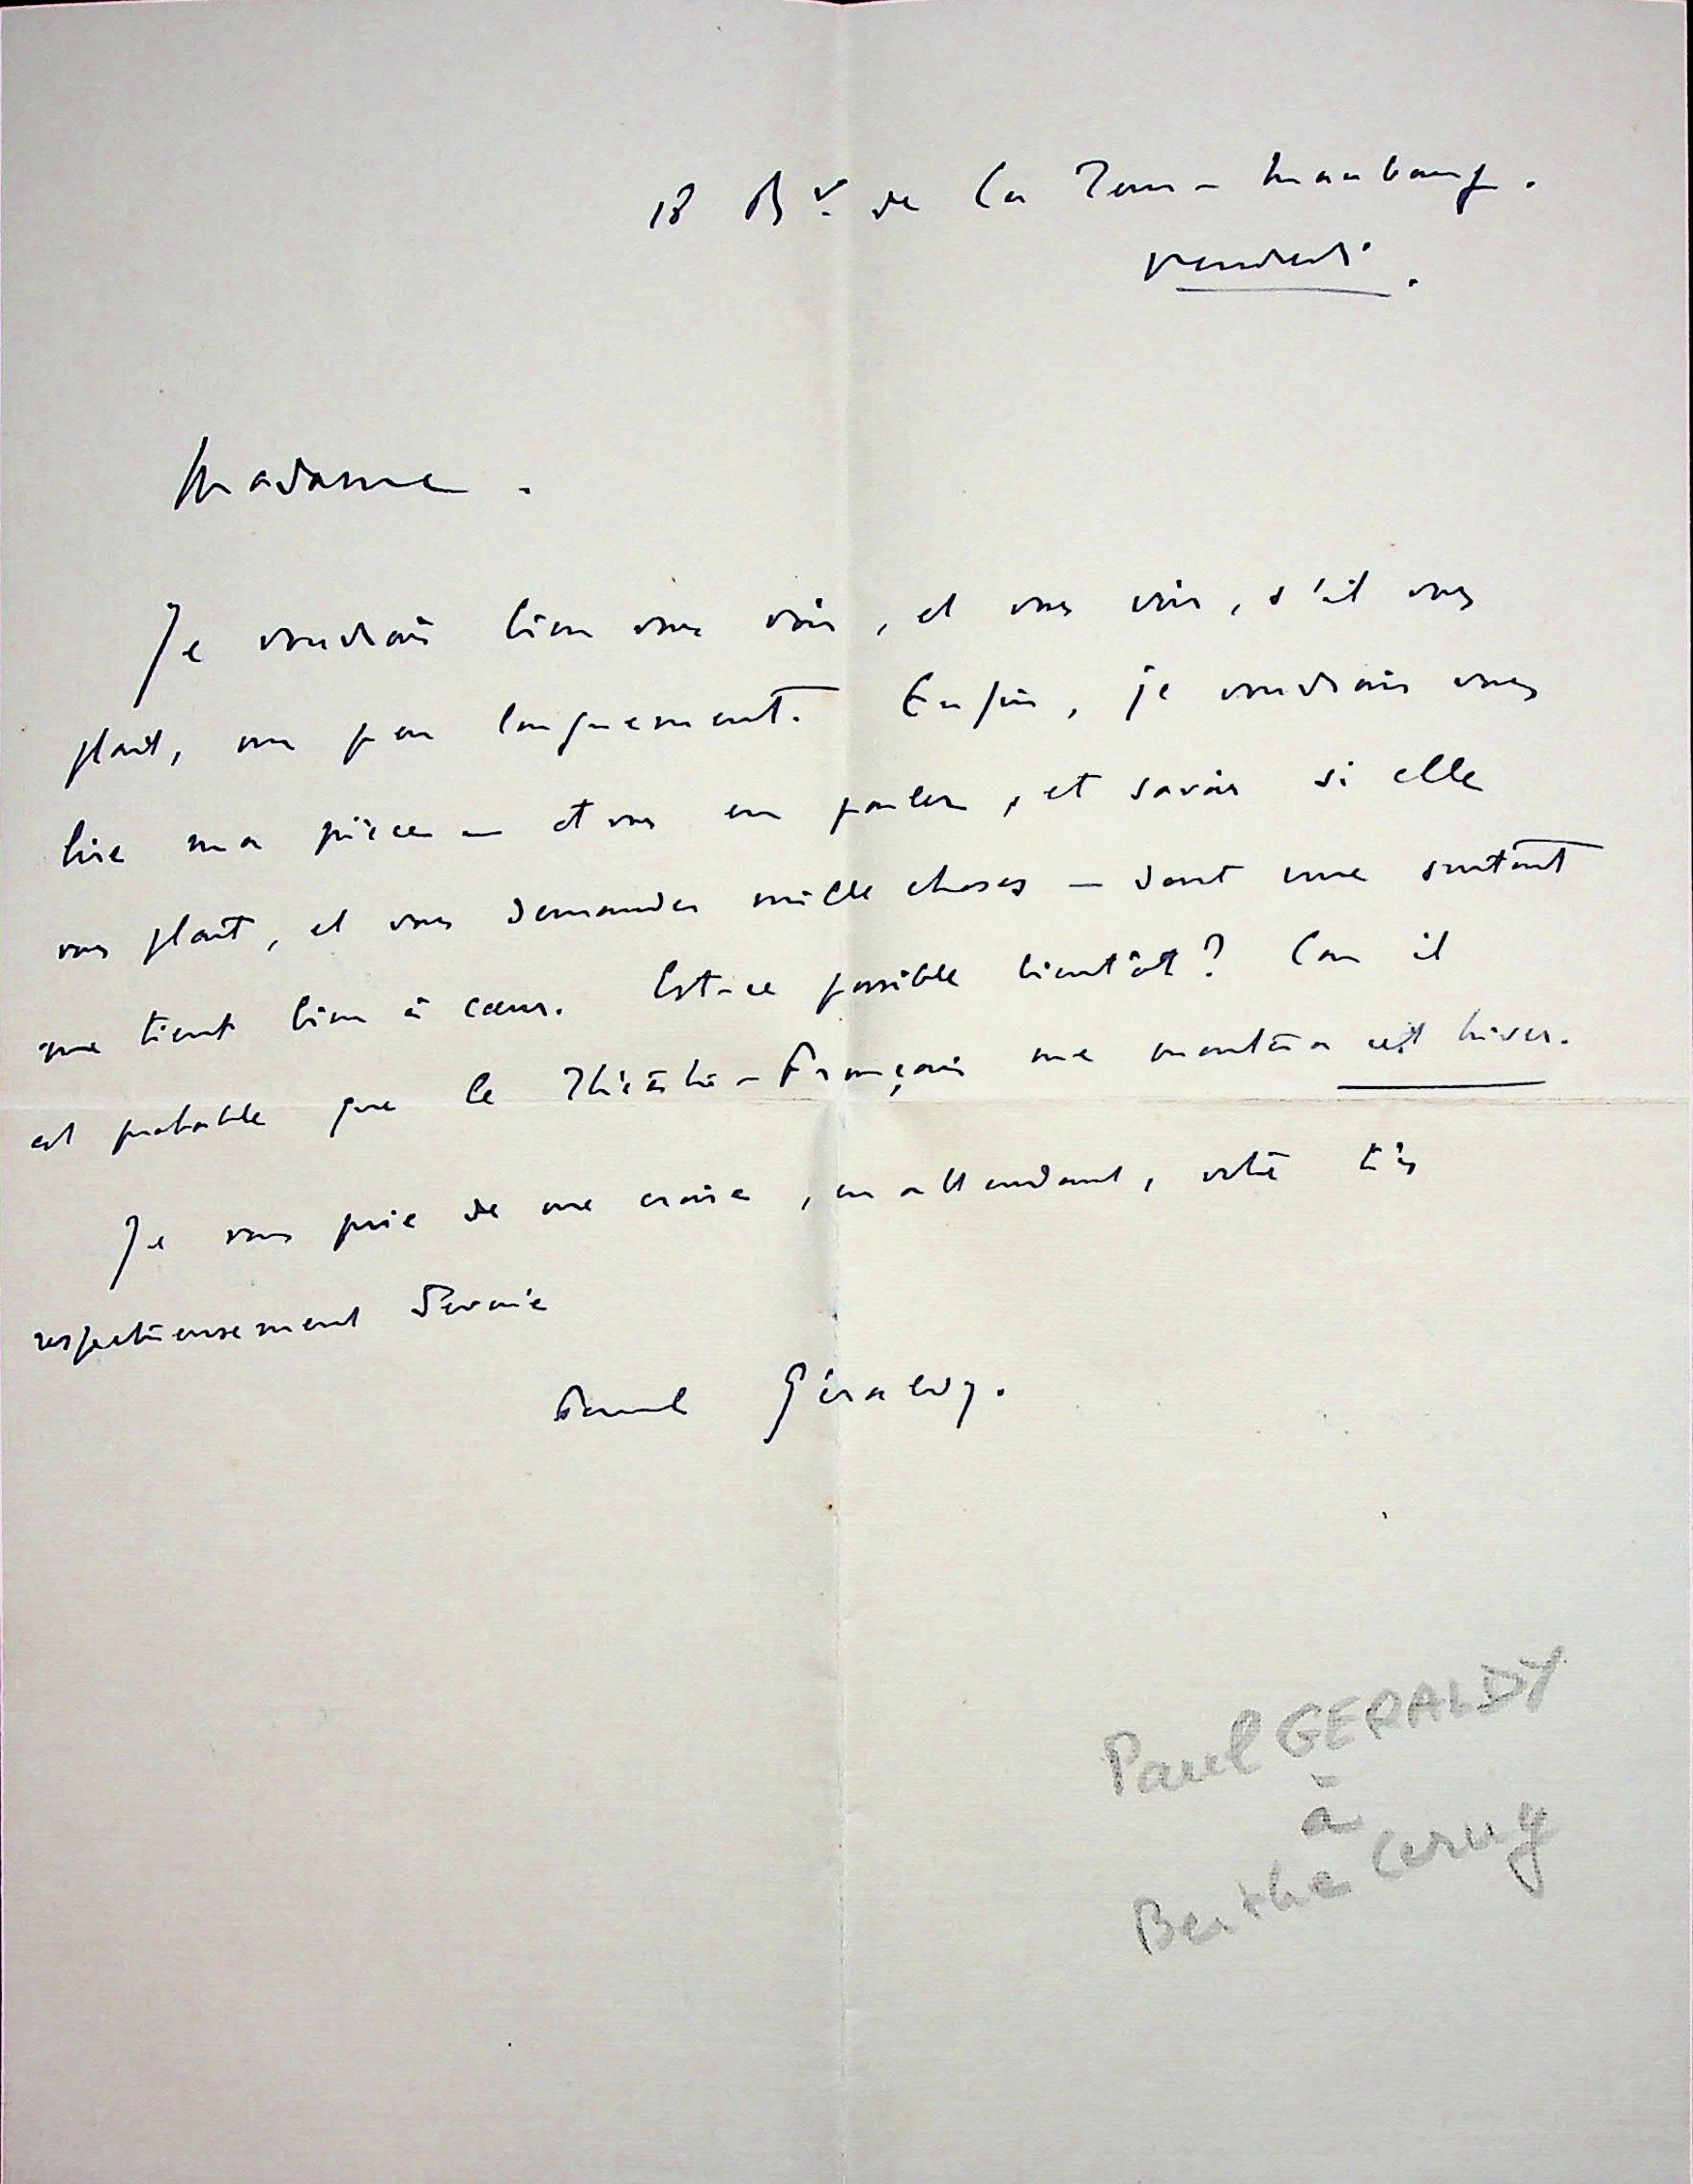 18 Bd. de La Tour-Maubourg.
vendredi.
Madame.
Je voudrais bien vous voir, et vous voir, s'il vous
plaît, un peu longuement. Enfin, je voudrais vous
lire ma pièce — et vous en parler, et savoir si elle
vous plaît, et vous demander mille choses — dont une surtout
me tient bien à cœur. Est-ce possible bientôt? Car il
est probable que le Théâtre-Français me montera cet hiver.
Je vous prie de me croire, en attendant, votre très
respectueusement dévoué
Paul Géraldy.
Paul GERALDY
à
Berthe Cerny